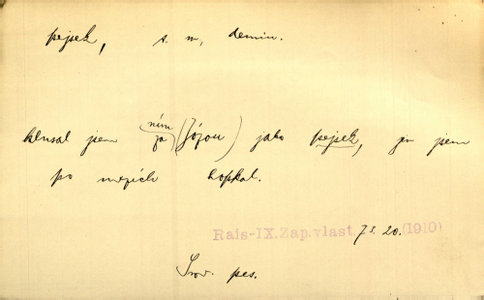 pejsek, s. m, demin.
klusal jsem za ním (Jójou) jako pejsek, jen jsem
po mezích hopkal.
Rais-IX.Zap.vlast. 7 s. 20. (1910)
Srov. pes.